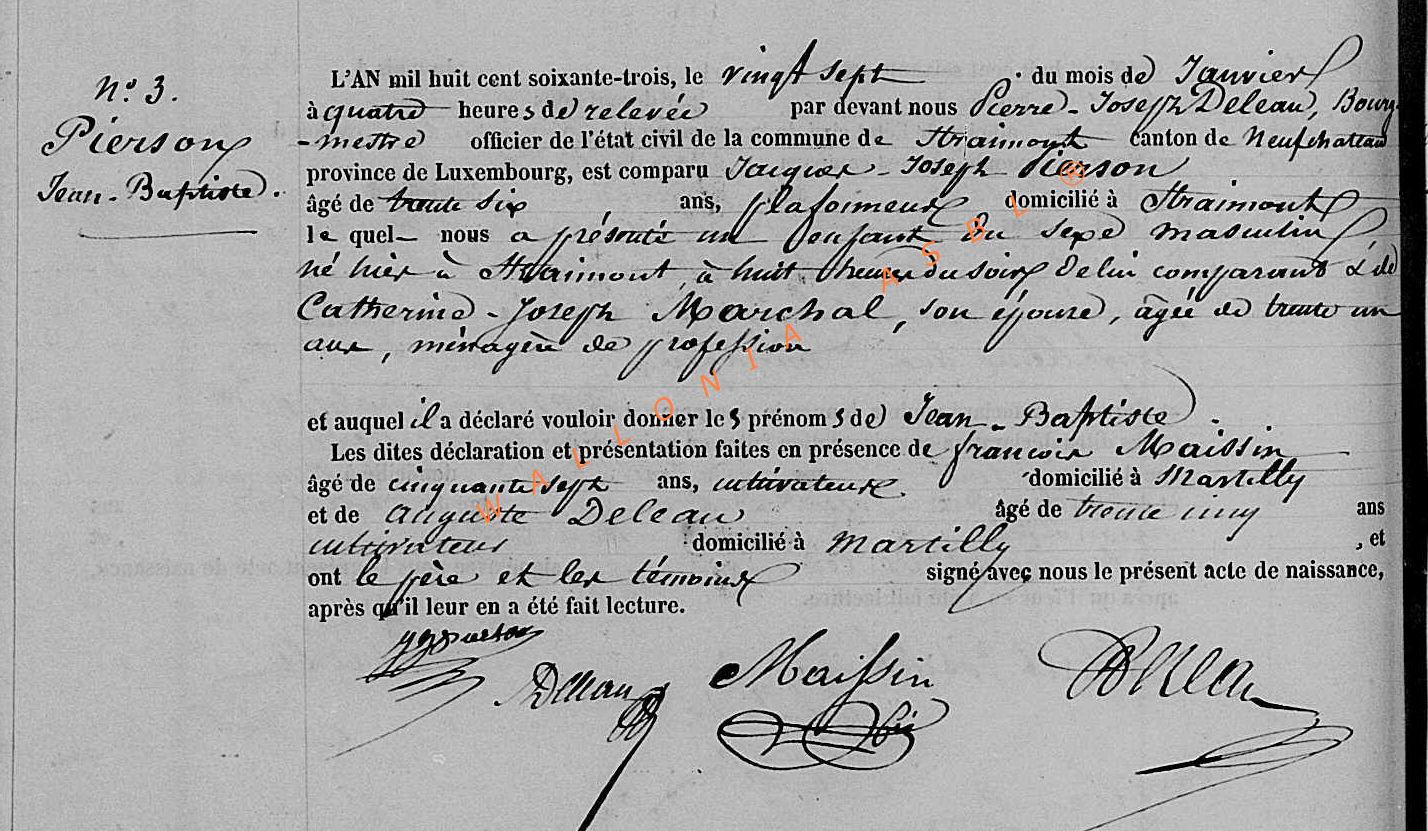 N° 3.
Pierson
Jean-Baptiste.
L'AN mil huit cent soixante-trois, le vingt sept du mois de Janvier
à quatre heures de relevée par devant nous Pierre-Joseph Deleau, Bourg-
-mestre officier de l'état civil de la commune de Straimont canton de Neufchateau
province de Luxembourg, est comparu Jacques-Joseph Pierson
âgé de trente six ans, plafonneur domicilié à Straimont
lequel nous a présenté un enfant du sexe masculin
né hier à Straimont, à huit heures du soir de lui comparant & de
Catherine-Joseph Marchal, son épouse, âgée de trente un
ans, ménagère de profession
et auquel il a déclaré vouloir donner les prénoms de Jean-Baptiste.
Les dites déclaration et présentation faites en présence de françois Maissin
âgé de cinquante sept ans, cultivateur domicilié à Martilly
et de Auguste Deleau âgé de trente cinq ans
cultivateur domicilié à Martilly, et
ont le père et les témoins signé avec nous le présent acte de naissance,
après qu'il leur en a été fait lecture.
Deleau Maissin
WALLONIA ASBL ®